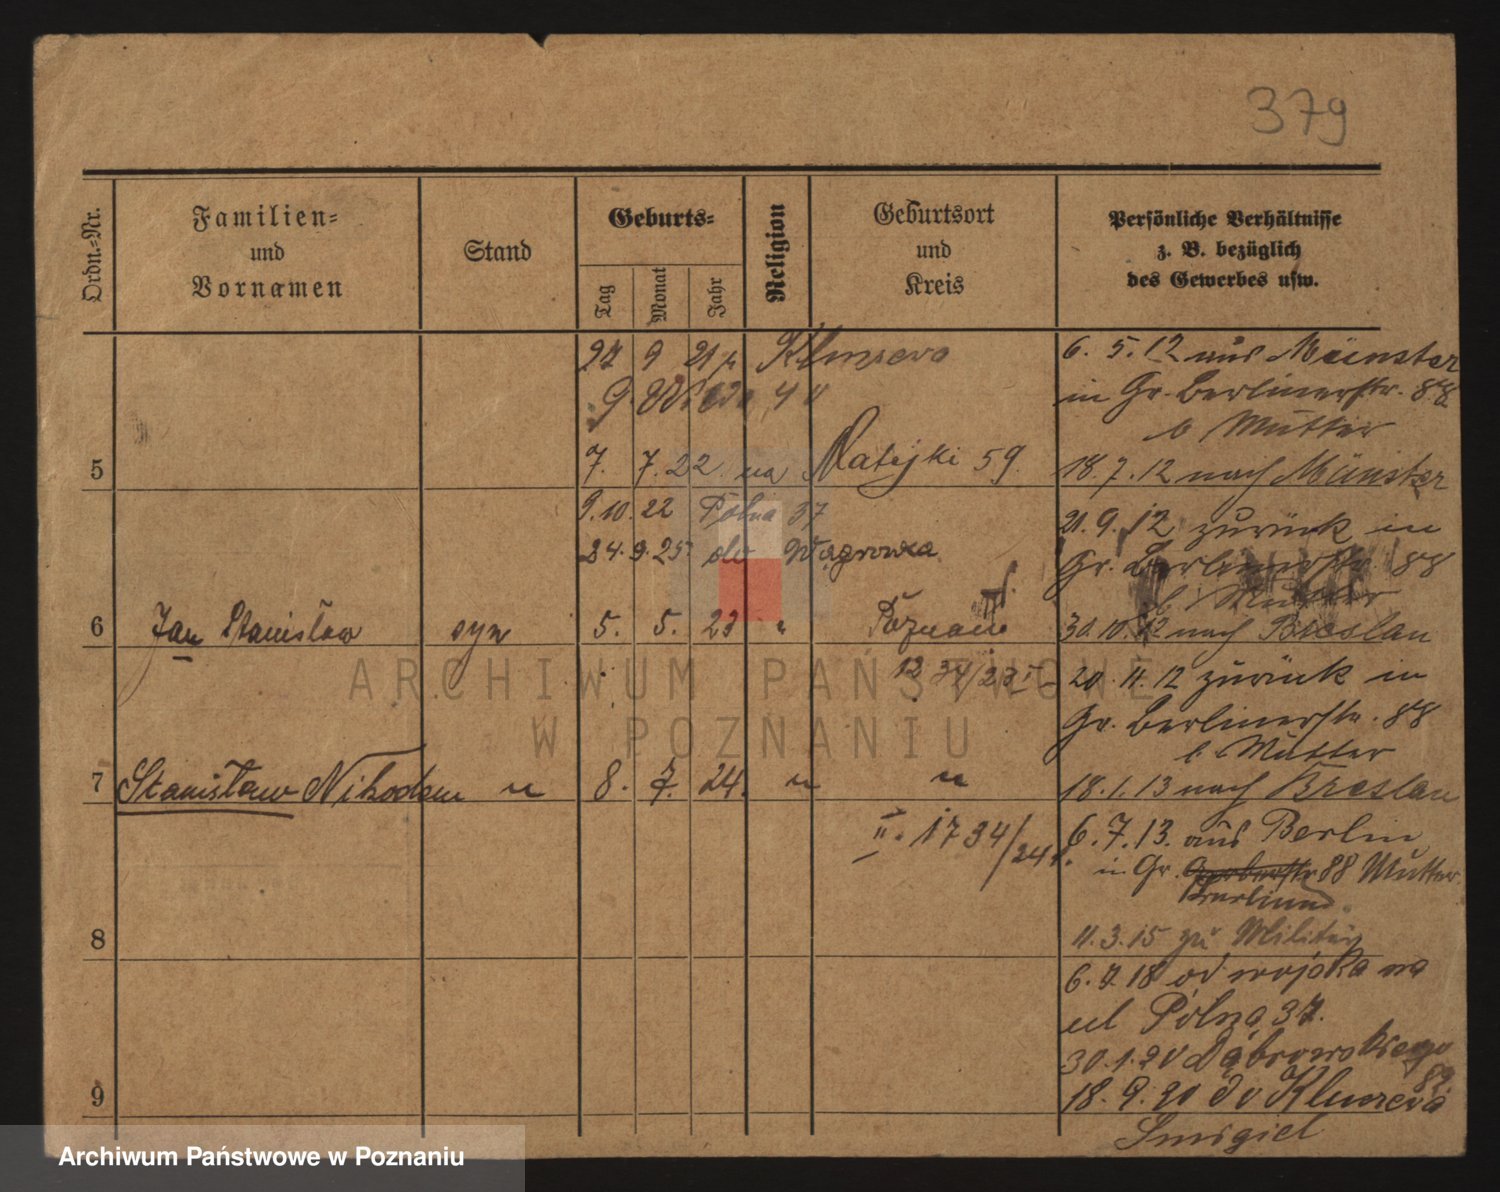 379
Ordn.=Nr.
Familien=
und
Vornamen
Stand
Geburts=
Tag
Monat
Jahr
Religion
Geburtsort
und
Kreis
Persönliche Verhältnisse
z. B. bezüglich
des Gewerbes usw.
27 9 21 z Kluczewa
9.
5
7. 7. 22 na Matejki 59.
9. 10. 22 Polna 37
24. 9. 25 do Wągrowca
6 Jan Stanisław syn 5. 5. 23 " Poznań
12 34/23
7 Stanisław Nikodem " 8. 7. 24. " "
II. 1734/24
8
9
6. 5. 12 aus Münster
in Gr. Berlinerstr. 88
b Mutter
18. 7. 12 nach Münster
21. 9. 12 zurück in
Gr. Berlinerstr. 88
b. Mutter
30. 10. 12 nach Breslau
20. 11. 12 zurück in
Gr. Berlinerstr. 88
b. Mutter
18. 1. 13 nach Breslau
6. 7. 13. aus Berlin
in Gr. 88 Mutter
Berliner
11. 3. 15 zu Militär
6. 7. 18 od wojska na
ul Polna 37.
30. 1. 20 Dąbrowskiego
89.
18. 9. 20 do Kluczewa
Smigiel
ARCHIWUM PAŃSTWOWE
W POZNANIU
Archiwum Państwowe w Poznaniu